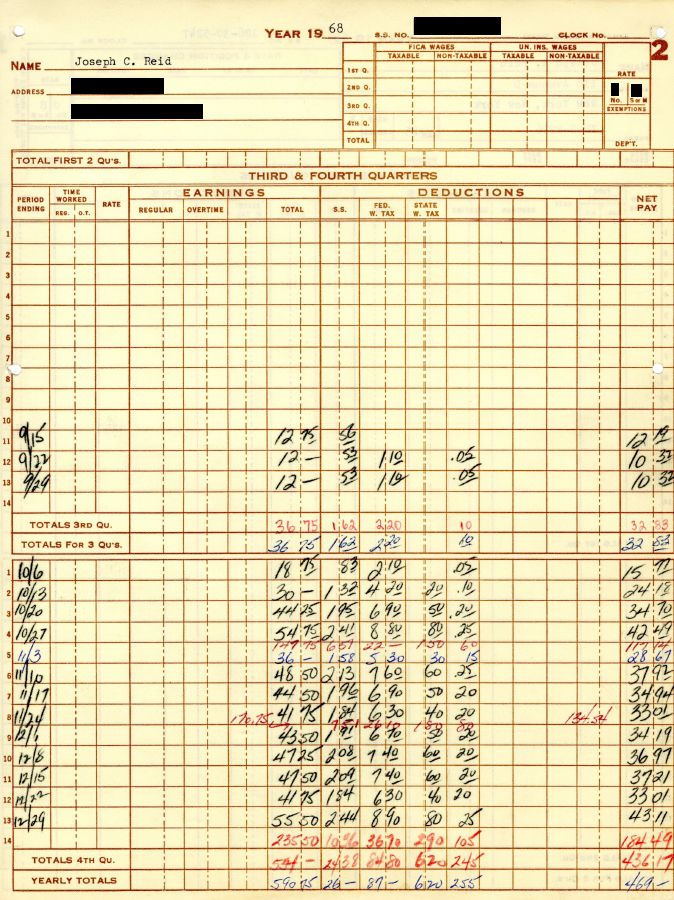 YEAR 19 68 S.S. NO. CLOCK NO. 2
NAME Joseph C. Reid
ADDRESS
FICA WAGES UN. INS. WAGES
TAXABLE NON-TAXABLE TAXABLE NON-TAXABLE RATE
1ST Q.
2ND Q.
3RD Q. No. S or M
4TH Q. EXEMPTIONS
TOTAL DEP'T.
TOTAL FIRST 2 QU'S.
THIRD & FOURTH QUARTERS
PERIOD ENDING TIME WORKED RATE EARNINGS DEDUCTIONS NET PAY
REG. O.T. REGULAR OVERTIME TOTAL S.S. FED. W. TAX STATE W. TAX
1
2
3
4
5
6
7
8
9
10
11 9/15 12 75 56 12 19
12 9/22 12 — 53 1.10 .05 10 32
13 9/29 12 — 53 1.10 .05 10 32
14
TOTALS 3RD QU. 36 75 1 62 2 20 10 32 83
TOTALS FOR 3 QU'S. 36 75 1 62 2 20 10 32 83
1 10/6 18 75 83 2 10 .05 15 77
2 10/13 30 — 1 32 4 20 20 .10 24 18
3 10/20 44 25 1 95 6 90 50 .20 34 70
4 10/27 54 75 2 41 8 80 80 .25 42 49
147 75 6 51 22 — 1 50 60 117 14
5 11/3 36 — 1 58 5 30 30 15 28 67
6 11/10 48 50 2 13 7 60 60 .25 37 92
7 11/17 44 50 1 96 6 90 50 20 34 94
8 11/24 41 75 1 84 6 30 40 20 33 01
170.75 7 51 26 10 1 80 80 134.54
9 12/1 43 50 1 91 6 70 50 20 34 19
10 12/8 47 25 2 08 7 40 60 20 36 97
11 12/15 47 50 2 09 7 40 60 20 37 21
12 12/22 41 75 1 84 6 30 40 20 33 01
13 12/29 55 50 2 44 8 90 80 25 43 11
14 235 50 10 36 36 70 2 90 1 05 184 49
TOTALS 4TH QU. 554 — 24 38 84 80 6 20 2 45 436 17
YEARLY TOTALS 590 75 26 — 87 — 6 20 2 55 469 —